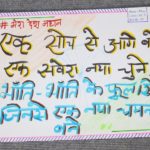 मेरा देश महान
एक सोच से आगे ब
एक सवेरा नया चुने
भाँति-भाँति के फूल
जिनसे एक नया चमन
बने